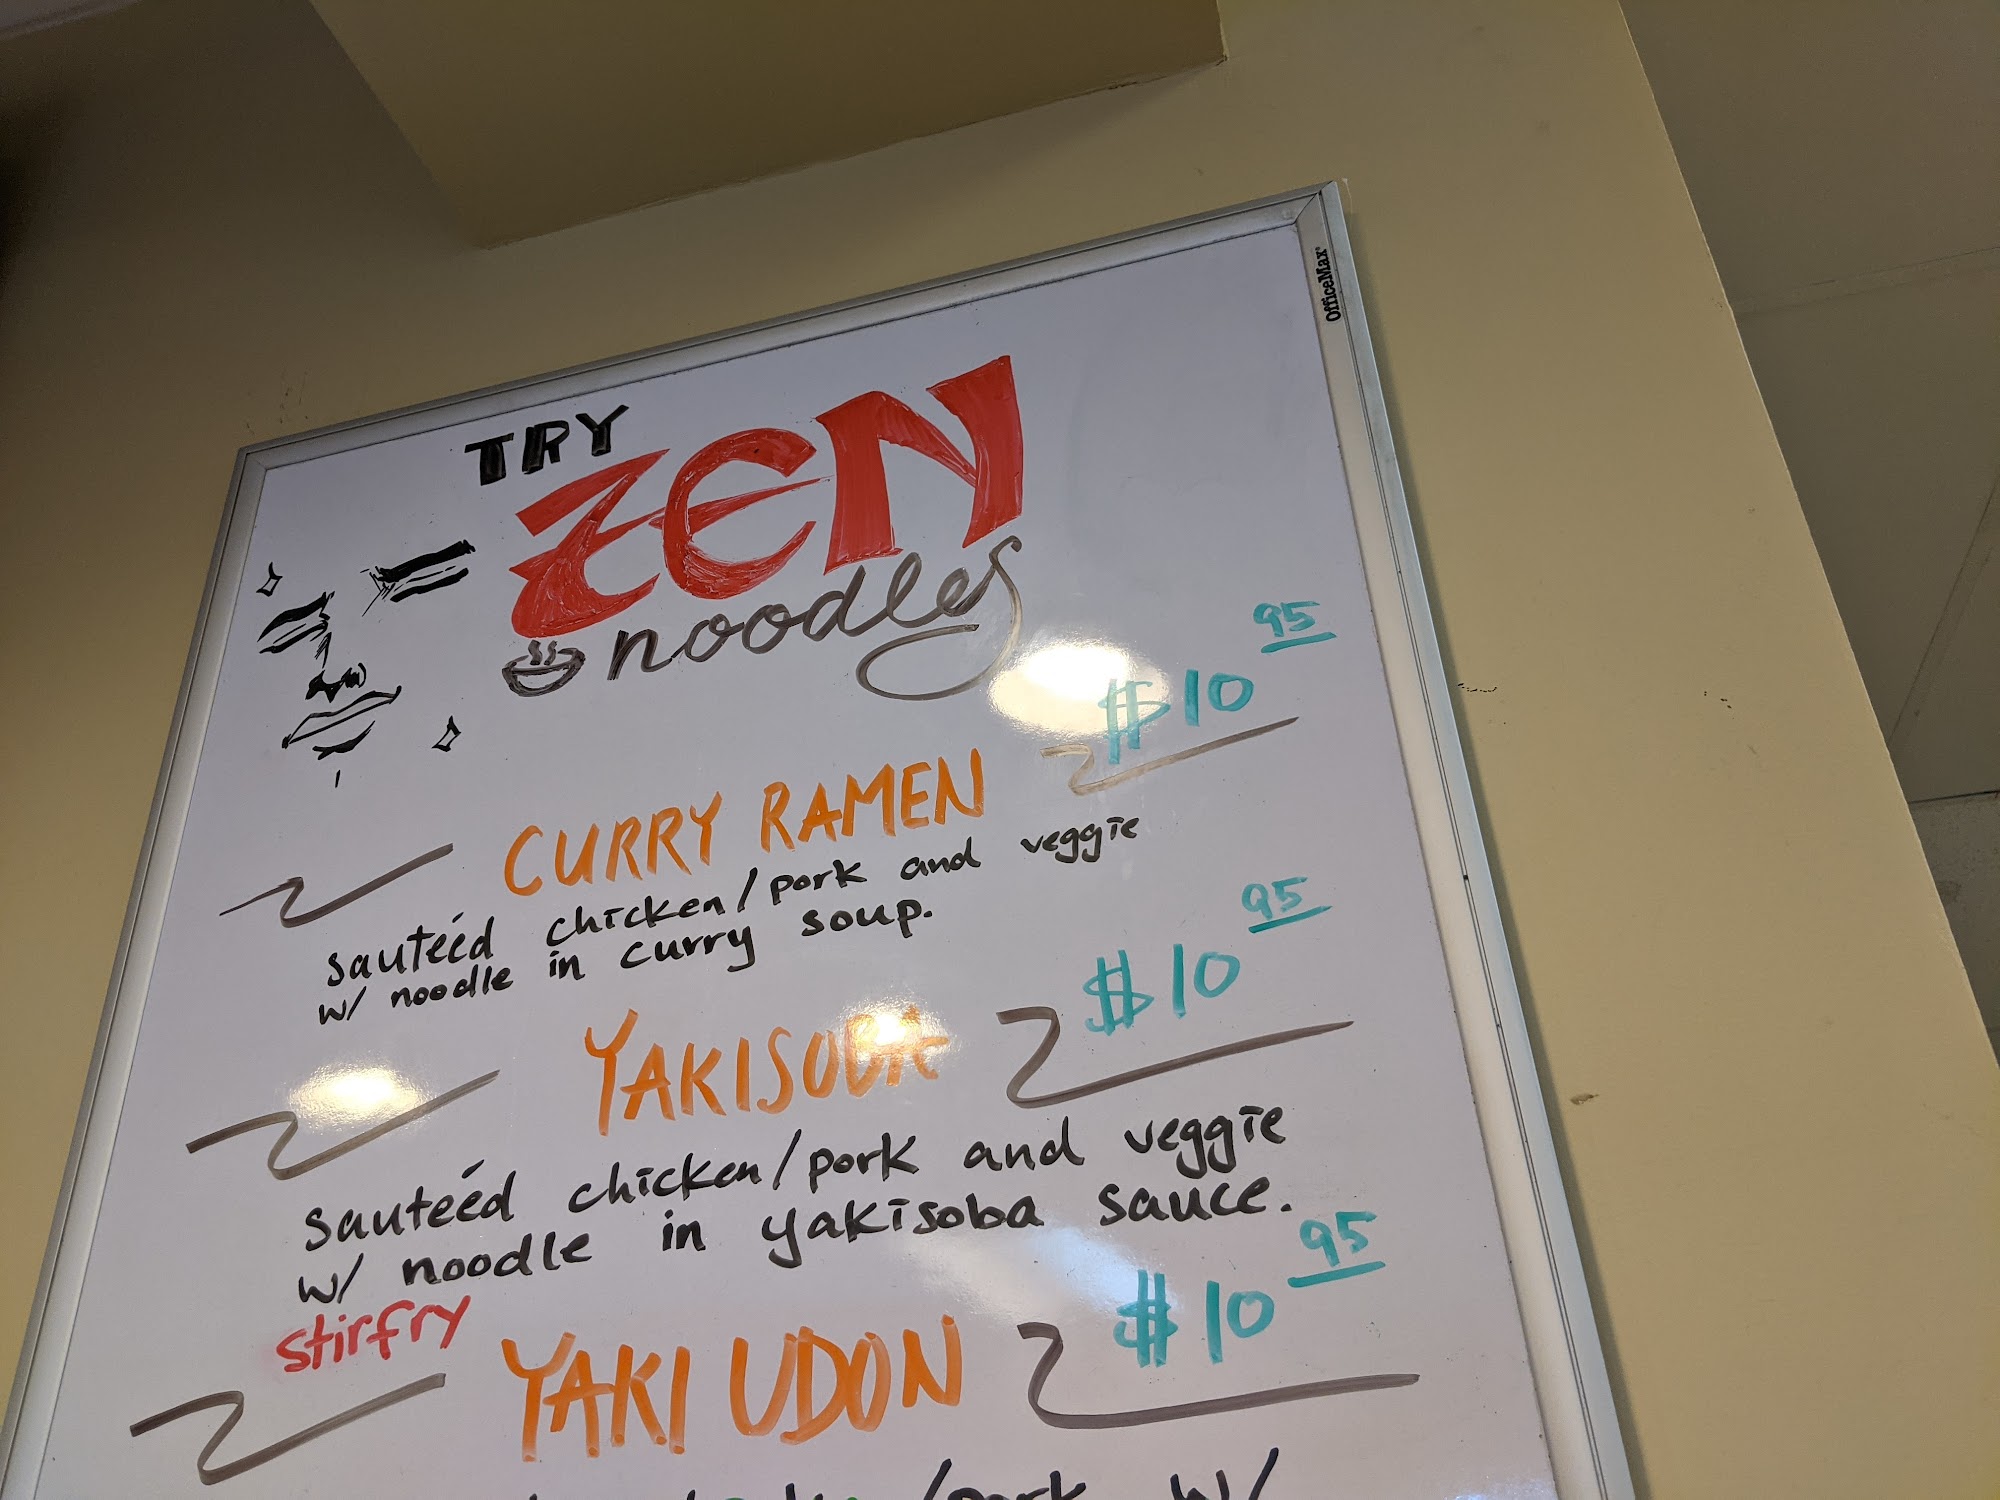 OfficeMax®
TRY
ZEN
noodles
CURRY RAMEN $10 95
sauteéd chicken/pork and veggie
w/ noodle in curry soup.
YAKISOBA $10 95
sauteéd chicken/pork and veggie
w/ noodle in yakisoba sauce.
stirfry
YAKI UDON $10 95
/pork w/